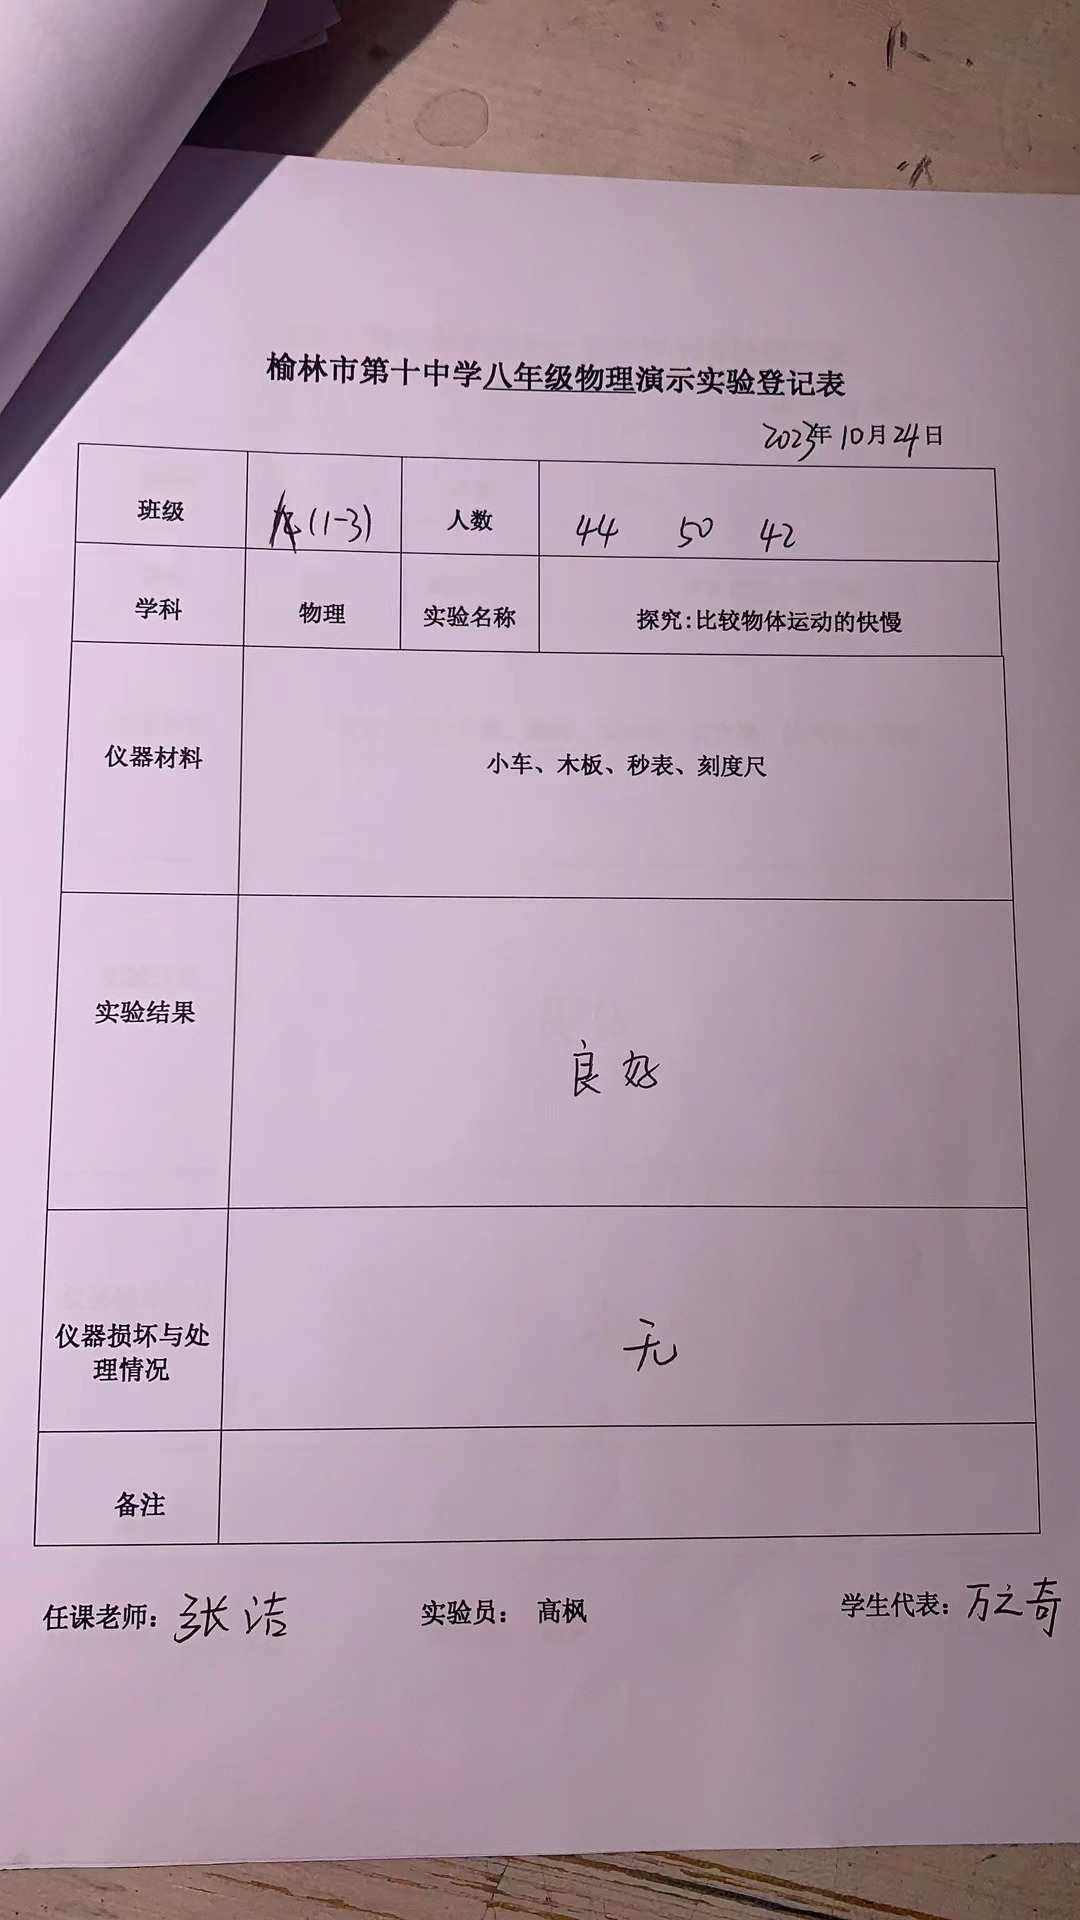 榆林市第十中学八年级物理演示实验登记表
2023年10月24日
班级 (1-3) 人数 44 50 42
学科 物理 实验名称 探究:比较物体运动的快慢
仪器材料 小车、木板、秒表、刻度尺
实验结果 良好
仪器损坏与处
理情况 无
备注
任课老师: 张洁 实验员: 高枫 学生代表: 万之奇